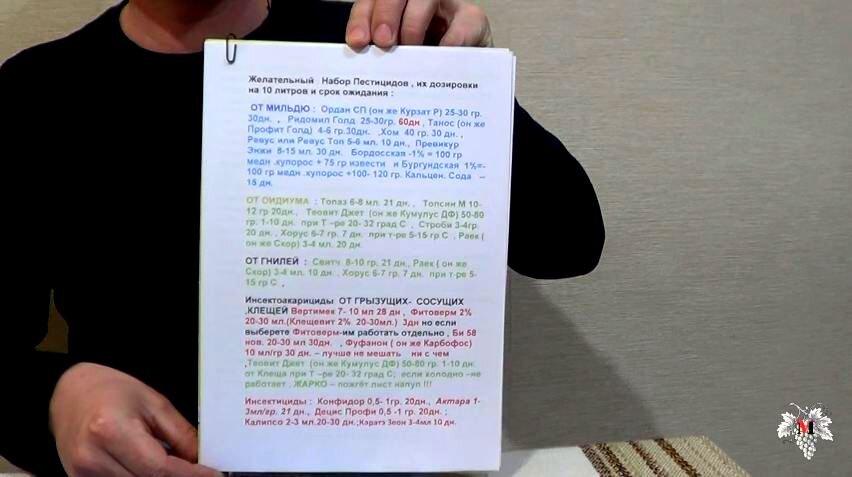 Желательный Набор Пестицидов , их дозировки
на 10 литров и срок ожидания :
ОТ МИЛЬДЮ : Ордан СП (он же Курзат Р) 25-30 гр.
30дн. , Ридомил Голд 25-30гр. 60дн , Танос (он же
Профит Голд) 4-6 гр.30дн. ,Хом 40 гр. 30 дн. ,
Ревус или Ревус Топ 5-6 мл. 10 дн., Превикур
Энжи 8-15 мл. 30 дн. Бордосская -1% = 100 гр
медн .купорос + 75 гр извести и Бургундская 1%=-
100 гр медн .купорос +100- 120 гр. Кальцен. Сода –
15 дн.
ОТ ОИДИУМА : Топаз 6-8 мл. 21 дн. , Топсин М 10-
12 гр 20дн., Теовит Джет (он же Кумулус ДФ) 50-80
гр. 1-10 дн. при Т –ре 20- 32 град С , Строби 3-4гр.
20 дн. , Хорус 6-7 гр. 7 дн. при т-ре 5-15 гр С , Раек (
он же Скор) 3-4 мл. 20 дн.
ОТ ГНИЛЕЙ : Свитч 8-10 гр. 21 дн., Раек ( он же
Скор) 3-4 мл. 10 дн. , Хорус 6-7 гр. 7 дн. при т-ре 5-
15 гр С ,
Инсектоакарициды ОТ ГРЫЗУЩИХ- СОСУЩИХ
,КЛЕЩЕЙ Вертимек 7- 10 мл 28 дн , Фитоверм 2%
20-30 мл.(Клещевит 2% 20-30мл.) 3дн но если
выберете Фитоверм-им работать отдельно , Би 58
нов. 20-30 мл 30дн. , Фуфанон ( он же Карбофос)
10 мл/гр 30 дн. – лучше не мешать ни с чем
,Теовит Джет (он же Кумулус ДФ) 50-80 гр. 1-10 дн.
от Клеща при Т –ре 20- 32 град С; если холодно –не
работает , ЖАРКО – пожгёт лист напуп !!!
Инсектициды : Конфидор 0,5- 1гр. 20дн., Актара 1-
3мл/гр. 21 дн., Децис Профи 0,5 -1 гр. 20дн. ;
Калипсо 2-3 мл.20-30 дн.;Каратэ Зеон 3-4мл 10 дн.
М